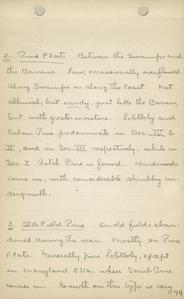 2. Pine Flats. Between the Swamps and
the Barrens. Low, occasionally overflowed
along Swamps or along the Coast. Not
alluvial, but sandy, just like the Barrens,
but with greater moisture. Loblolly and
Cuban Pine predominate in Sec. IV &
II, and in Sec. III respectively, while in
Sec. I Pitch Pine is found. Hardwoods
come in, with considerable shrubby un-
dergrowth.
3. Old Field Pine. On old fields aban-
doned during the war. Mostly on Pine
Flats. Generally pure Loblolly, except
in Maryland & Va. where Scrub Pine
comes in. Growth on this type is very